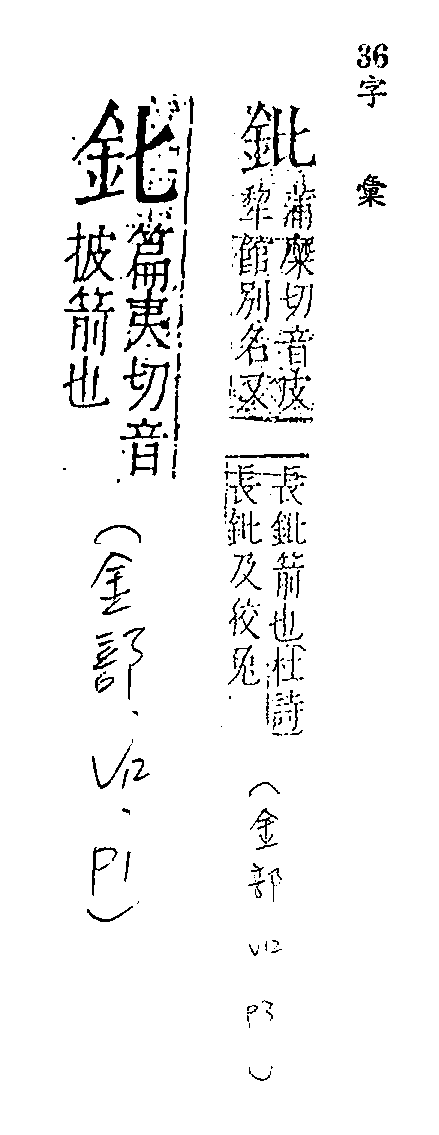 36字 彙
鈚
蒲糜切音皮
犂錧別名又
長鈚箭也杜詩
長鈚及狡兔
(金部 V12 P3)
鈚
篇夷切音
披箭也
(金部、V12、P1)